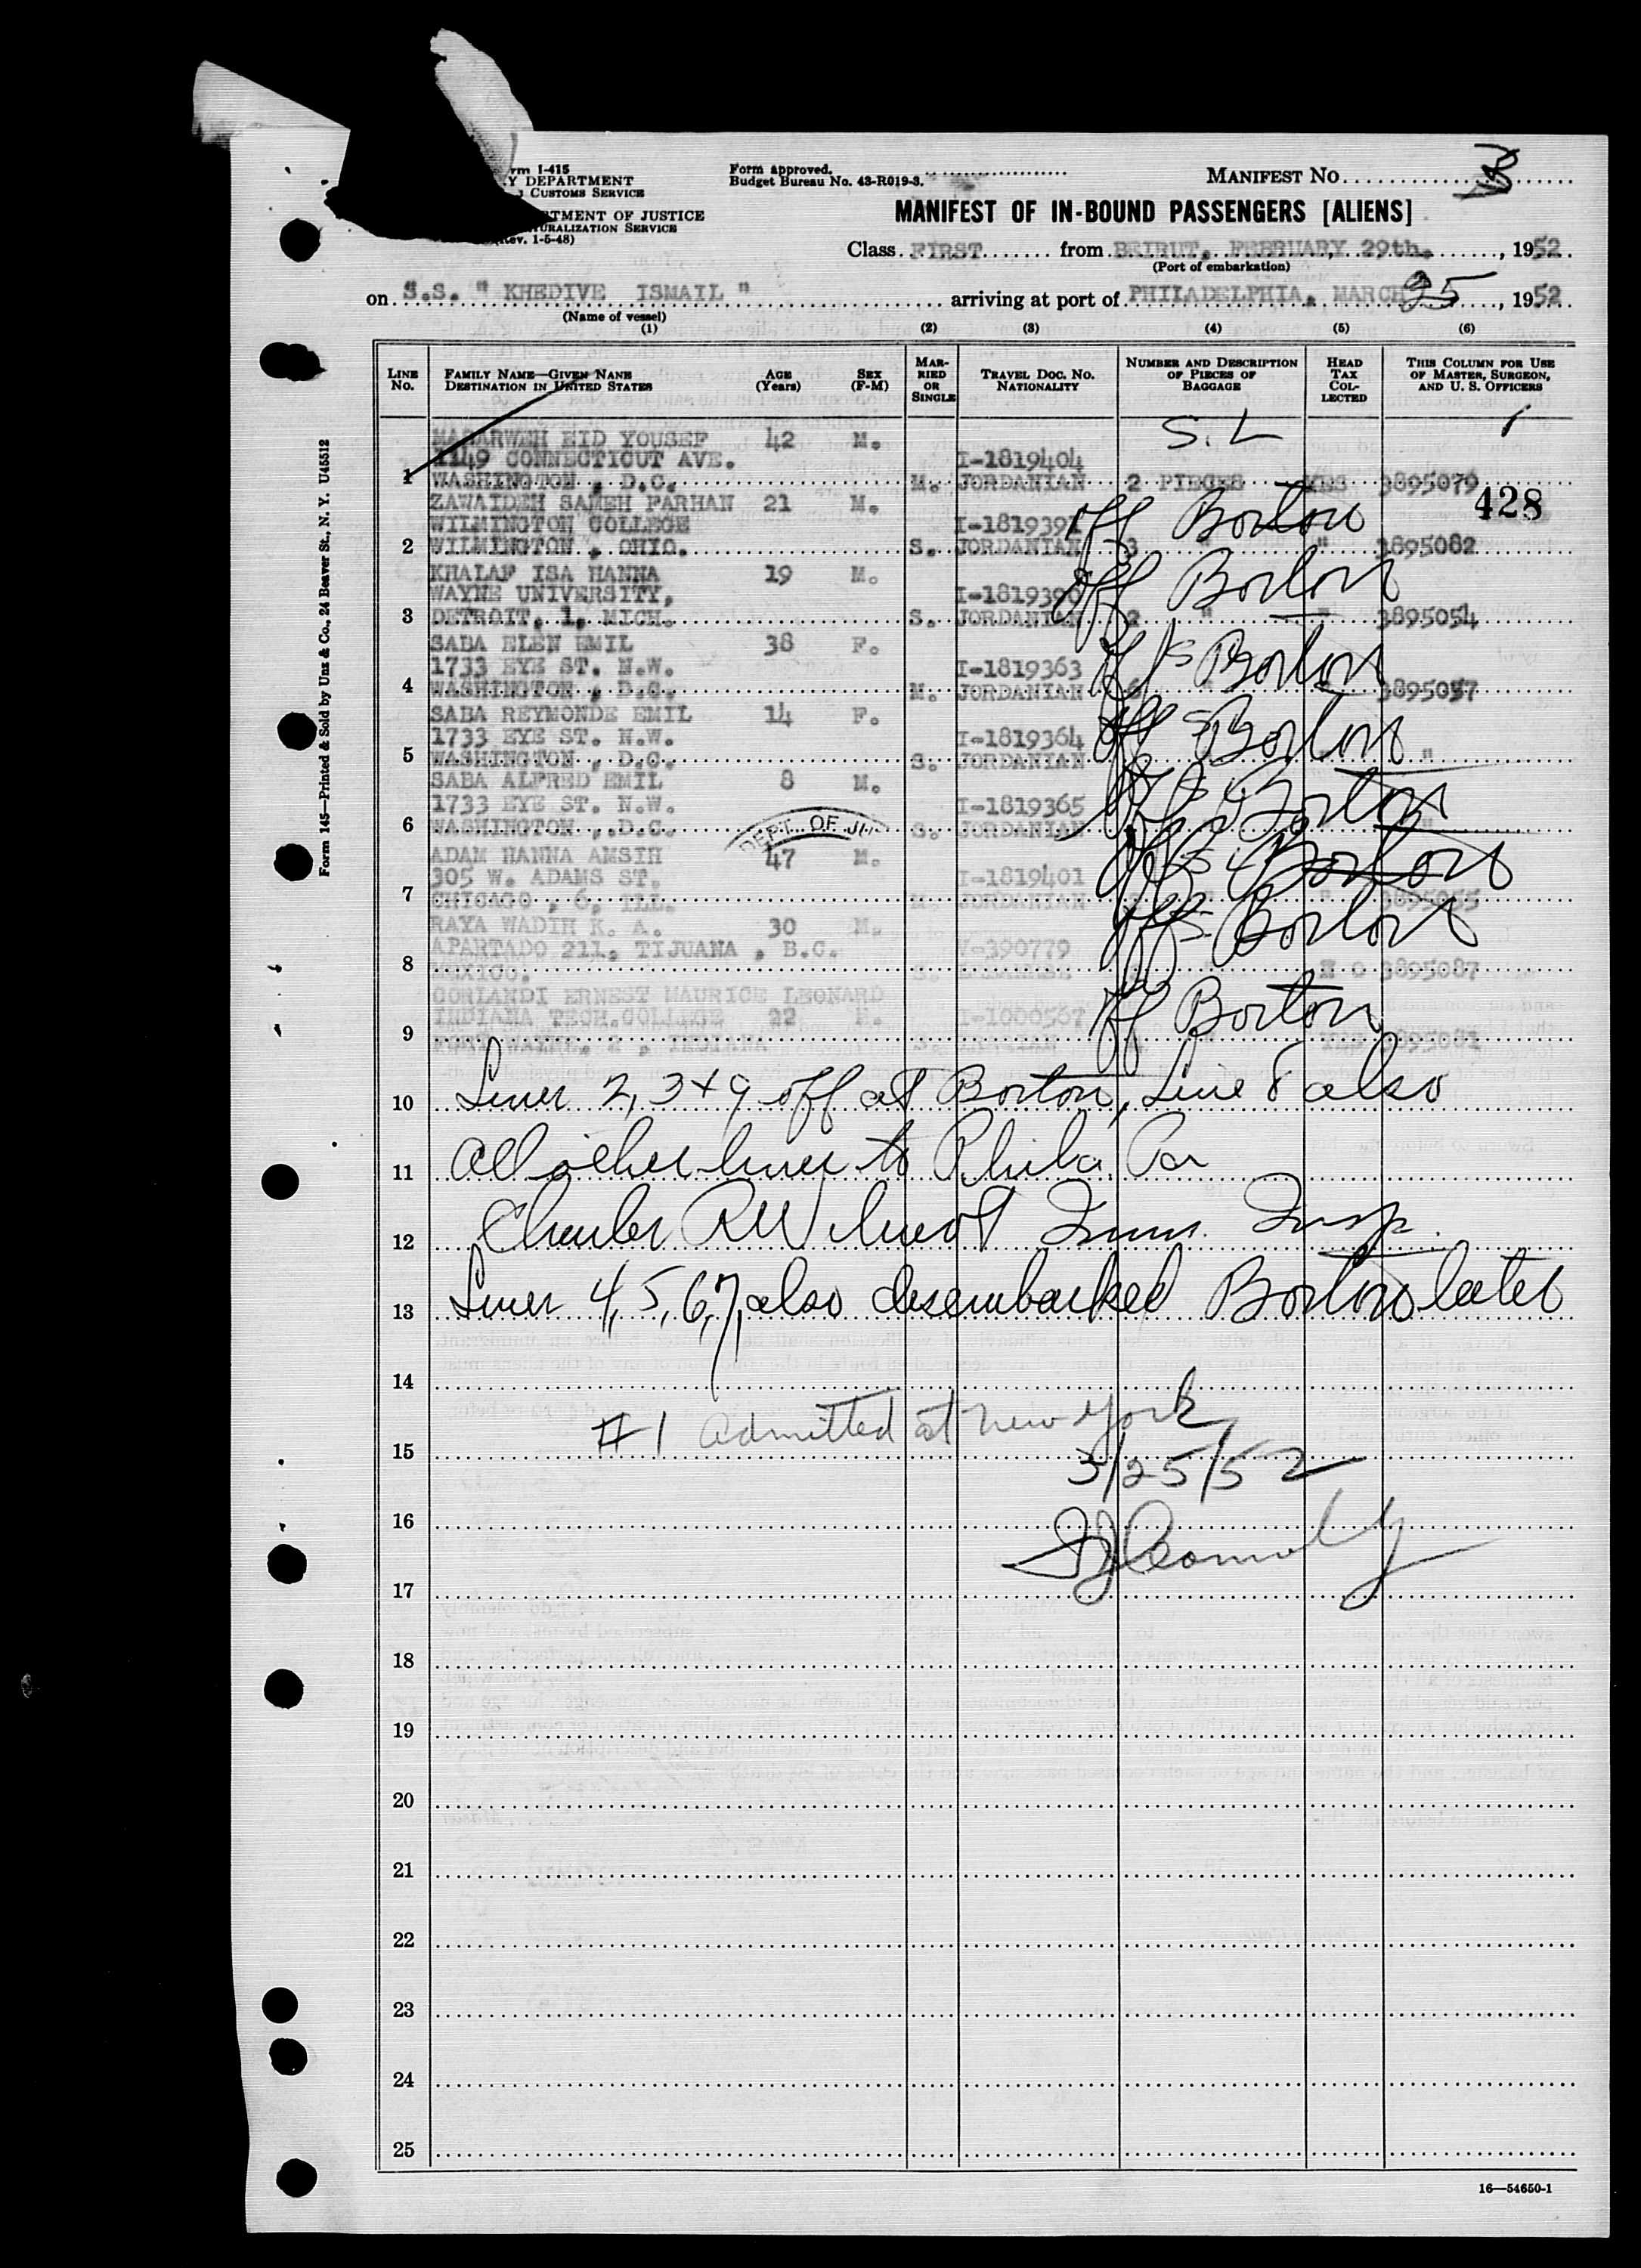 Form approved.
Budget Bureau No. 43-R019-3.
MANIFEST NO.
rm I-415
Y DEPARTMENT
CUSTOMS SERVICE
TMENT OF JUSTICE
URALIZATION SERVICE
(Rev. 1-5-48)
MANIFEST OF IN-BOUND PASSENGERS [ALIENS]
Class FIRST from BEIRUT, FEBRUARY 29th. , 1952
(Port of embarkation)
on S.S. " KHEDIVE ISMAIL " arriving at port of PHILADELPHIA, MARCH 25, 1952
(Name of vessel)
(1) (2) (3) (4) (5) (6)
LINE No. FAMILY NAME—GIVEN NAME DESTINATION IN UNITED STATES AGE (Years) SEX (F-M) MARRIED OR SINGLE TRAVEL DOC. NO. NATIONALITY NUMBER AND DESCRIPTION OF PIECES OF BAGGAGE HEAD TAX COLLECTED THIS COLUMN FOR USE OF MASTER, SURGEON, AND U. S. OFFICERS
S. L
MABARWEH EID YOUSEF 42 M.
1149 CONNECTICUT AVE. I-1819404
1 WASHINGTON , D.C. M. JORDANIAN 2 PIECES YES 3895079
428
ZAWAIDEH SAMEH FARHAN 21 M. off Boston
WILMINGTON COLLEGE I-1819391
2 WILMINGTON , OHIO. S. JORDANIAN 3 " " 3895082
KHALAF ISA HANNA 19 M. off Boston
WAYNE UNIVERSITY, I-1819390
3 DETROIT, 1, MICH. S. JORDANIAN 2 " " 3895054
SABA ELEN EMIL 38 F. Boston
1733 EYE ST. N.W. I-1819363
4 WASHINGTON , D.C. M. JORDANIAN 6 " 3895057
SABA REYMONDE EMIL 14 F. off Boston
1733 EYE ST. N.W. I-1819364
5 WASHINGTON , D.C. S. JORDANIAN "
SABA ALFRED EMIL 8 M. Boston
1733 EYE ST. N.W. I-1819365
6 WASHINGTON , D.C. S. JORDANIAN "
DEPT. OF JU
ADAM HANNA AMSIH 47 M. Boston
305 W. ADAMS ST. I-1819401
7 CHICAGO , 6, ILL. M. JORDANIAN " 3895055
RAYA WADIH K. A. 30 M. off Boston
APARTADO 211, TIJUANA , B.C. V-390779
8 MEXICO. S. N O 3895087
CORLANDI ERNEST MAURICE LEONARD off Boston
INDIANA TECH.COLLEGE 22 M. I-1000567
9 FORT WAYNE, 2 , INDIANA S. " YES 3895081
10 Lines 2, 3 + 9 off at Boston, Line 8 also
11 All other lines to Phila. Pa
12 Imm. Insp.
13 Lines 4, 5, 6, 7, also disembarked Boston later
14
#1 admitted at new York
15
3/25/52
16
17
18
19
20
21
22
23
24
25
16—54650-1
Form 145—Printed & Sold by Unz & Co., 24 Beaver St., N. Y. U45512